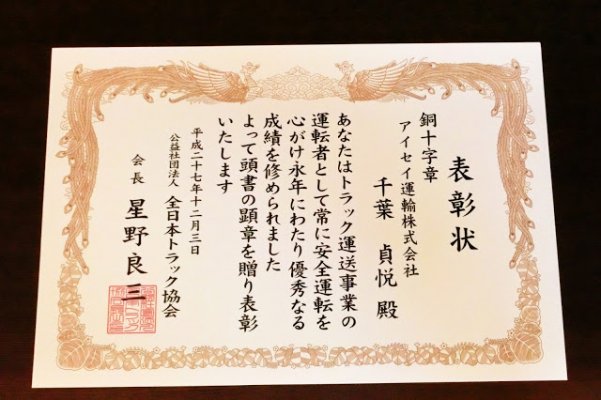 表彰状
銅十字章
アイセイ運輸株式会社
千葉 貞悦 殿
あなたはトラック運送事業の
運転者として常に安全運転を
心がけ永年にわたり優秀なる
成績を修められました
よって頭書の顕章を贈り表彰
いたします
平成二十七年十二月三日
公益社団法人 全日本トラック協会
会長 星野良三